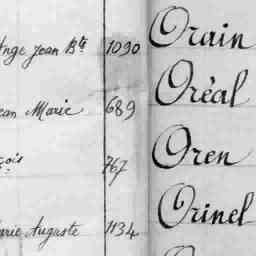 Ange Jean Bte 1090 Orain
Jean Marie 689 Oréal
çois 767 Oren
Marie Auguste 1134 Orinel